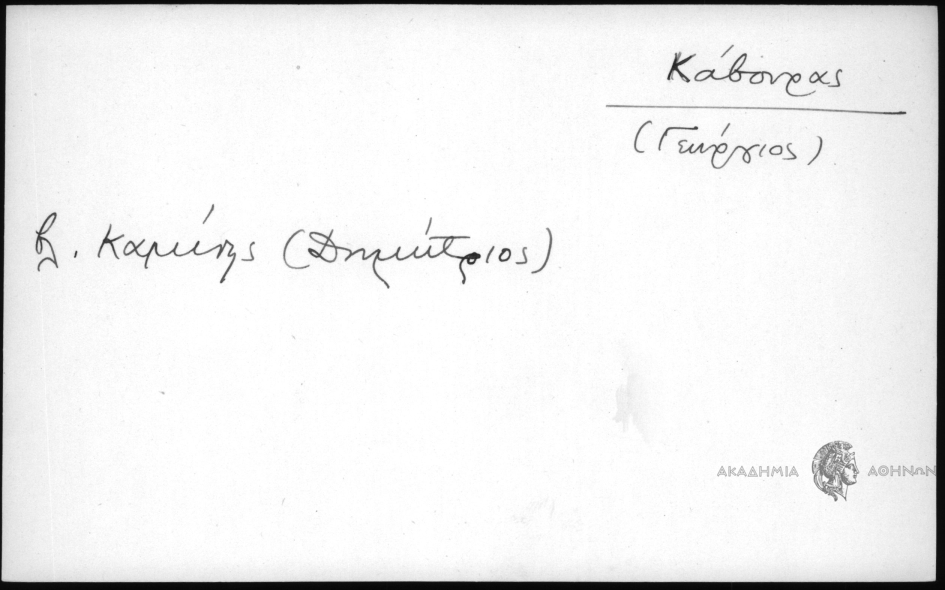 Κάβουρας
(Γεώργιος)
βλ. Καμπάνης (Δημήτριος)
ΑΚΑΔΗΜΙΑ ΑΘΗΝΩΝ